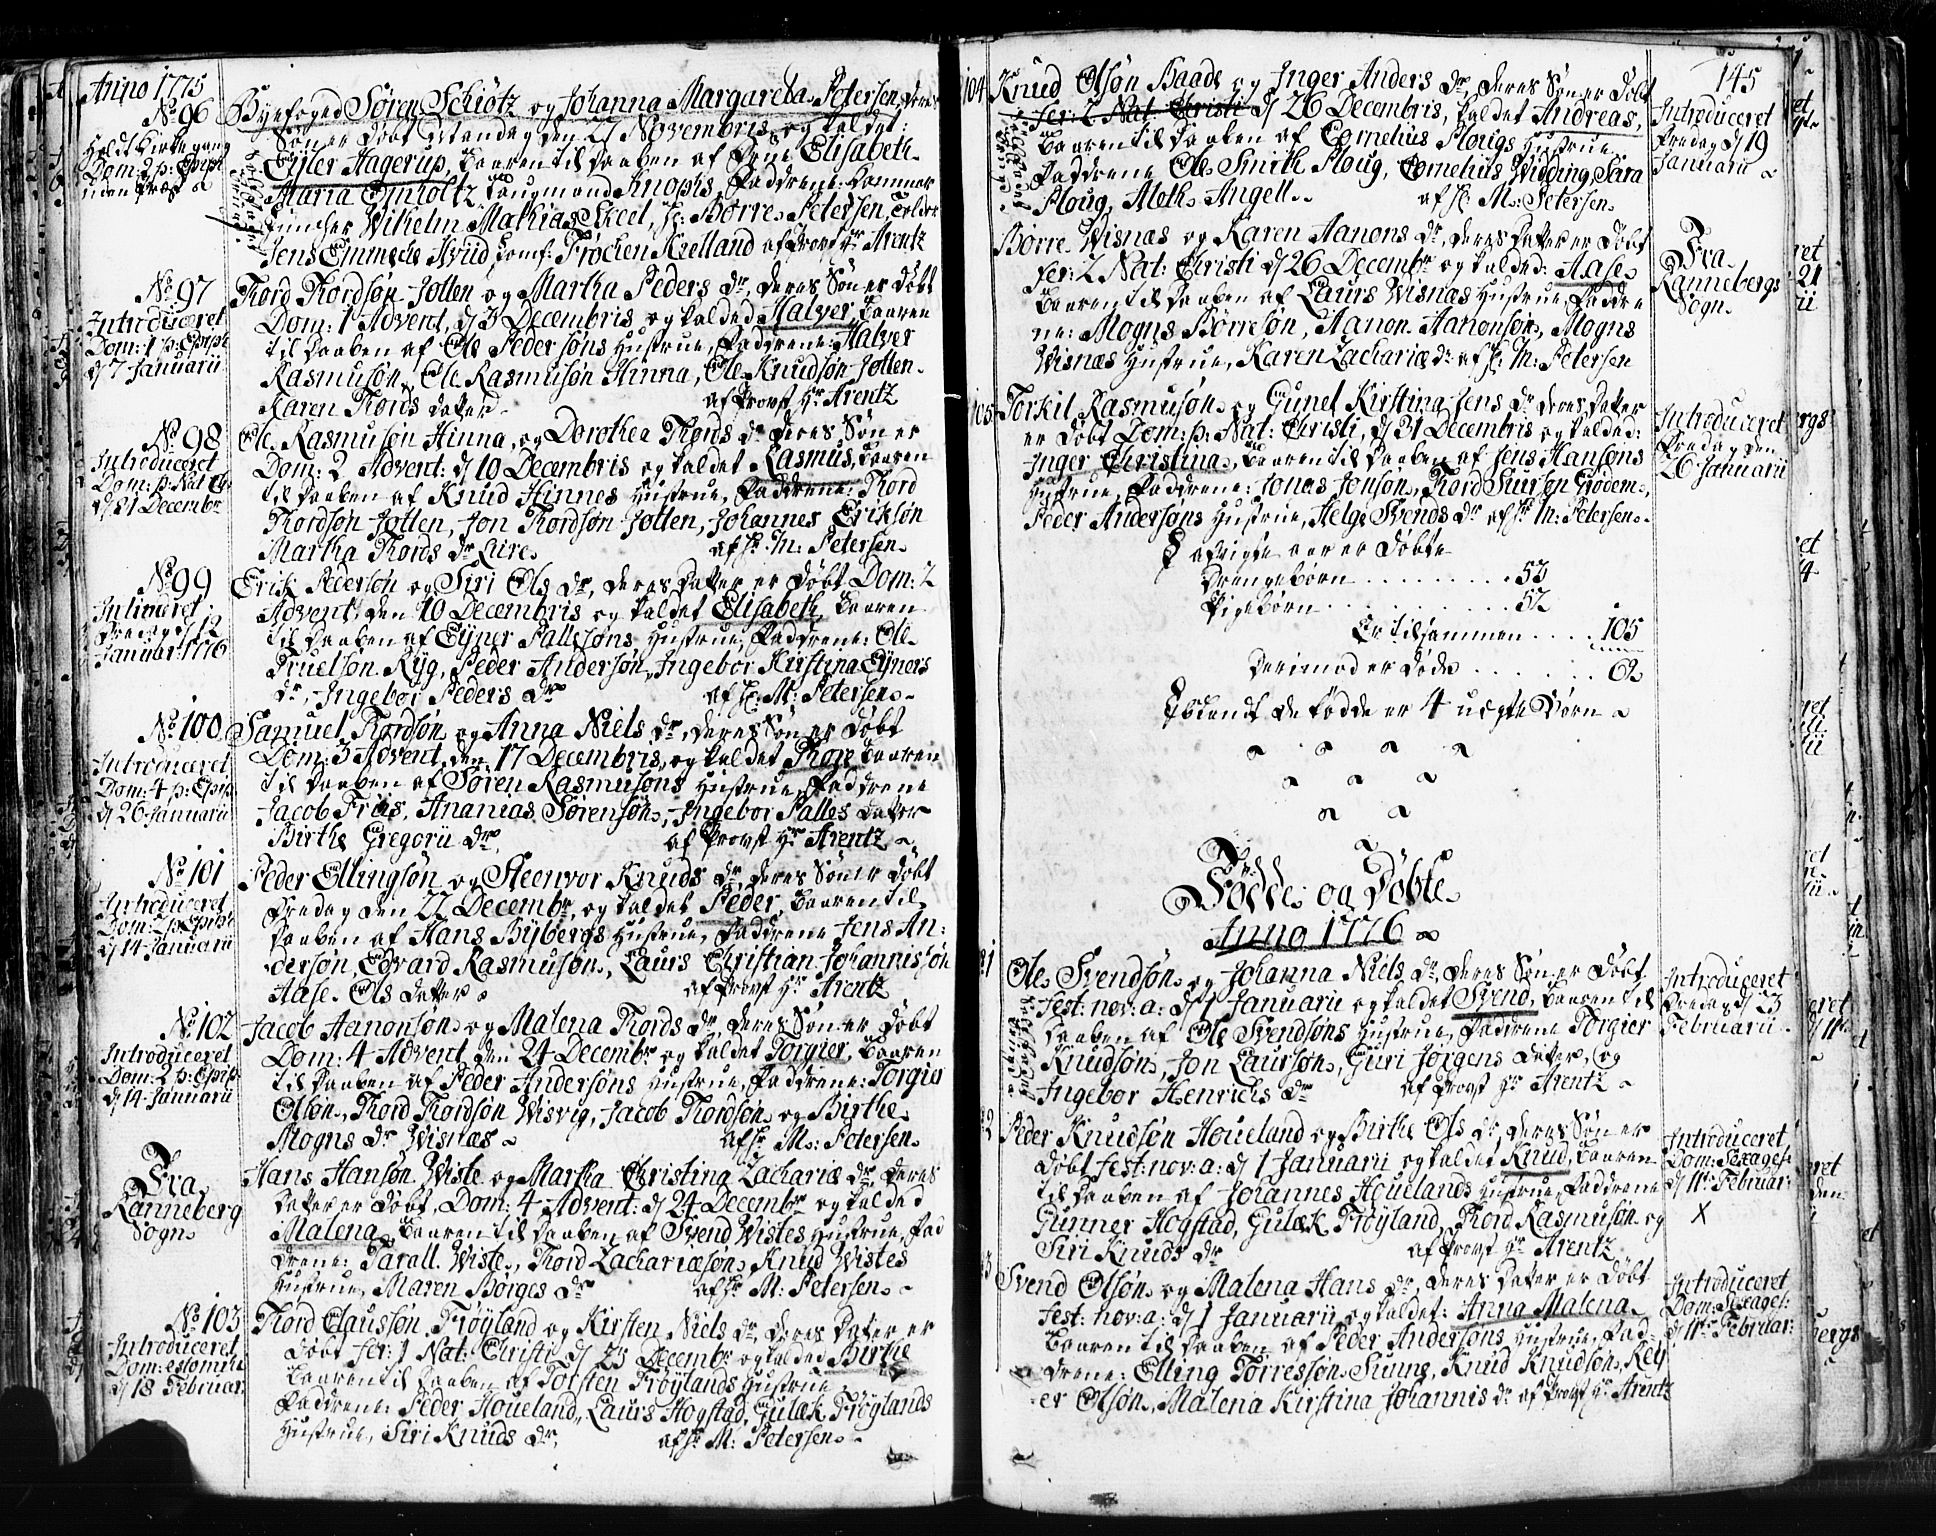 Anno 1775
No 96
Holdt Kirkegang
Dom: 2 p: Epiph
uden Præst
Byefoged Søren Schiøtz og Johanna Margareta Petersen, deres
Søn er døbt Onsdag den 21 Novembris, og kaldet:
Eyler Hagerup, baaren til Daaben af Frue Elisabeth
Maria Emholtz Laugmand Knophs, Faddrene: Kammer
Juncker Wilhelm Mathias Skeel, Hr: Børre Petersen, Tolder
Jens Emmeche Hviid, Jomf: Trøchen Kielland af Provst Hr Arentz
No 97
Introduceret
Dom: 1 p: Epiph
d 7 Januarii
Thord Thordsøn Jotten og Martha Peders dr, deres Søn er døbt
Dom: 1 Advent, d 3 Decembris og kaldet Halver, baaren
til Daaben af Ole Pedersøns Hustrue, Faddrene: Halver
Rasmusøn, Ole Rasmusøn Hinna, Ole Knudsøn Jotten
Karen Thords datter
af Provst Hr Arentz
No 98
Introduceret
Dom: p: Nat Chr
d 31 Decembr
Ole Rasmusøn Hinna, og Dorothea Thords dr deres Søn er
Dom: 2 Advent: d 10 Decembris og kaldet Rasmus, baaren
til Daaben af Knud Hinnes Hustrue, Faddrene: Thord
Thordsøn Jotten, Jon Thordsøn Jotten, Johannes Eriksøn
Martha Thords dr Lire
af Hr. M: Petersen
No 99
Introduceret
Fredag d 12
Januar: 1776
Erik Pedersøn og Siri Ols dr, deres Datter er døbt Dom: 2
Advent, den 10 Decembris og kaldet Elisabeth, baaren
til Daaben af Eyner Pallesøns Hustrue, Faddrene: Ole
Truelsøn Ryg, Peder Andersøn, Ingebor Kirstina Eyners
dr, Ingebor Peders dr
af Hr. M: Petersen
No 100
Introduceret
Dom: 4 p: Epiph
d 26 Januarii
Samuel Thordsøn og Anna Niels dr, deres Søn er døbt
Dom: 3 Advent, den 17 Decembris, og kaldet Thore baaren
til Daaben af Søren Rasmusøns Hustrue, Faddrene
Jacob Friis, Ananias Sørensøn, Ingebor Palles datter
Birthe Gregorii dr
af Provst Hr Arentz
No 101
Introduceret
Dom: 2 p: Epiph
d 14 Januarii
Peder Ellingsøn og Steenvor Knuds dr, deres Søn er døbt
Fredag den 22 Decembr, og kaldet Peder, baaren til
Daaben af Hans Bybergs Hustrue, Faddrene Jens An-
dersøn, Edvard Rasmusøn, Laurs Christian Johannissøn
Aase Ols datter
af Provst Hr Arentz
No 102
Introduceret
Dom: 2 p: Epiph
d 14 Januarii
Jacob Aanonsøn og Malena Thords dr, deres Søn er døbt
Dom: 4 Advent, den 24 Decembr og kaldet Torgier, baaren
til Daaben af Peder Andersøns Hustrue, Faddrene: Torgier
Olsøn, Thord Thordsøn Wisvig, Jacob Thordsøn og Birthe
Mogns dr Wisnæs
af Hr M: Petersen
Fra
Ranneberg
Sogn
Hans Hansøn Wiste og Martha Christina Zachariæ dr, deres
datter er døbt, Dom: 4 Advent: d 24 Decembr og kalded
Malena, baaren til Daaben af Svend Wistes Hustrue, Fad
drene: Tarall Wiste, Thord Zachariæsøn, Knud Wistes
Hustrue, Maren Børges dr
af Hr M: Petersen
No 103
Introduceret
Dom: estomihi
d 18 Februar
Thord Claussøn Trøyland og Kirsten Niels dr, deres datter er
døbt fer: 1 Nat: Christi d 25 Decembr og kalded Birthe
baaren til Daaben af Torsten Trøylands Hustrue
Faddrene: Peder Houeland, Laurs Hogstad, Gulæk Trøylands
Hustrue, Siri Knuds dr,
af Hr M: Petersen
145
104
Knud Olsøn Baade og Inger Anders dr, deres Søn er døbt
fer: 2 Nat: Christi d 26 Decembris, kaldet Andreas,
baaren til Daaben af Cornelius Plougs Hustrue
Faddrene Ole Smith Ploug, Cornelius Widding, Sara
Ploug, Aleth Angell
af Hr M: Petersen
Introduceret
Fredag d 19
Januarii
Børre Wisnæs og Karen Aanons dr, deres datter er døbt
fer: 2 Nat: Christi d 26 Decembr og kalded: Aase
baaren til Daaben af Laurs Wisnæs Hustrue, Faddre
ne: Mogns Børresøn, Aanon Aanonsøn, Mogns
Wisnæs Hustrue, Karen Zachariæ dr af Hr M: Petersen
Fra
Rannebergs
Sogn
105
Torkil Rasmusøn og Gunel Kirstina Jens dr deres datter
er døbt Dom: p: Nat: Christi, d 31 Decembris og kalded:
Inger Christina, baaren til Daaben af Jens Hansøns
Hustrue, Faddrene: Jonas Jonsøn, Thord Siursøn Gødem,
Peder Andersøns Hustrue, Helge Svends dr af Hr M: Petersen
Introduceret
Fredag den
26 Januarii
I afvigte aar er døbte
Drengebørn . . . . . . . . . 53
Pigebørn . . . . . . . . . . 52
Er tilsammen . . . . 105
Derimod er døde . . . . . . 62
Iblandt de fødde er 4 uegte børn
Fødde og Døbte
Anno 1776
1
Ole Svendsøn og Johanna Niels dr, deres Søn er døbt
fest: nov: a: d 1 Januarii og kaldet Svend, baaren til
Daaben af Ole Svendsøns Hustrue, Faddrene Torgier
Knudsøn, Jon Laursøn, Guri Jørgens datter, og
Ingebor Henrichs dr
af Provst Hr Arentz
Introduceret
Fredag d 23
Februarii
2
Peder Knudsøn Houeland og Birthe Ols dr, deres Søn er
døbt fest: nov: a: d 1 Januarii og kaldet Knud, baaren
til Daaben af Johannes Houelands Hustrue, Faddrene
Gunner Hogstad, Gulæk Trøyland, Thord Rasmusøn og
Siri Knuds dr
af Provst Hr Arentz
Introduceret
Dom: Sexages:
d 11te Februar:
X
3
Svend Olsøn og Malena Hans dr, deres datter er døbt
fest: nov: a: d 1 Januarii og kaldet: Anna Malena
baaren til Daaben af Peder Andersøns Hustrue, Fad-
drene: Elling Torressøn Sunne, Knud Knudsøn, Rey
er Olsøn, Malena Kirstina Johannis dr af Provst Hr Arentz
Introduceret
Dom: Sexages:
d 11te Februar: